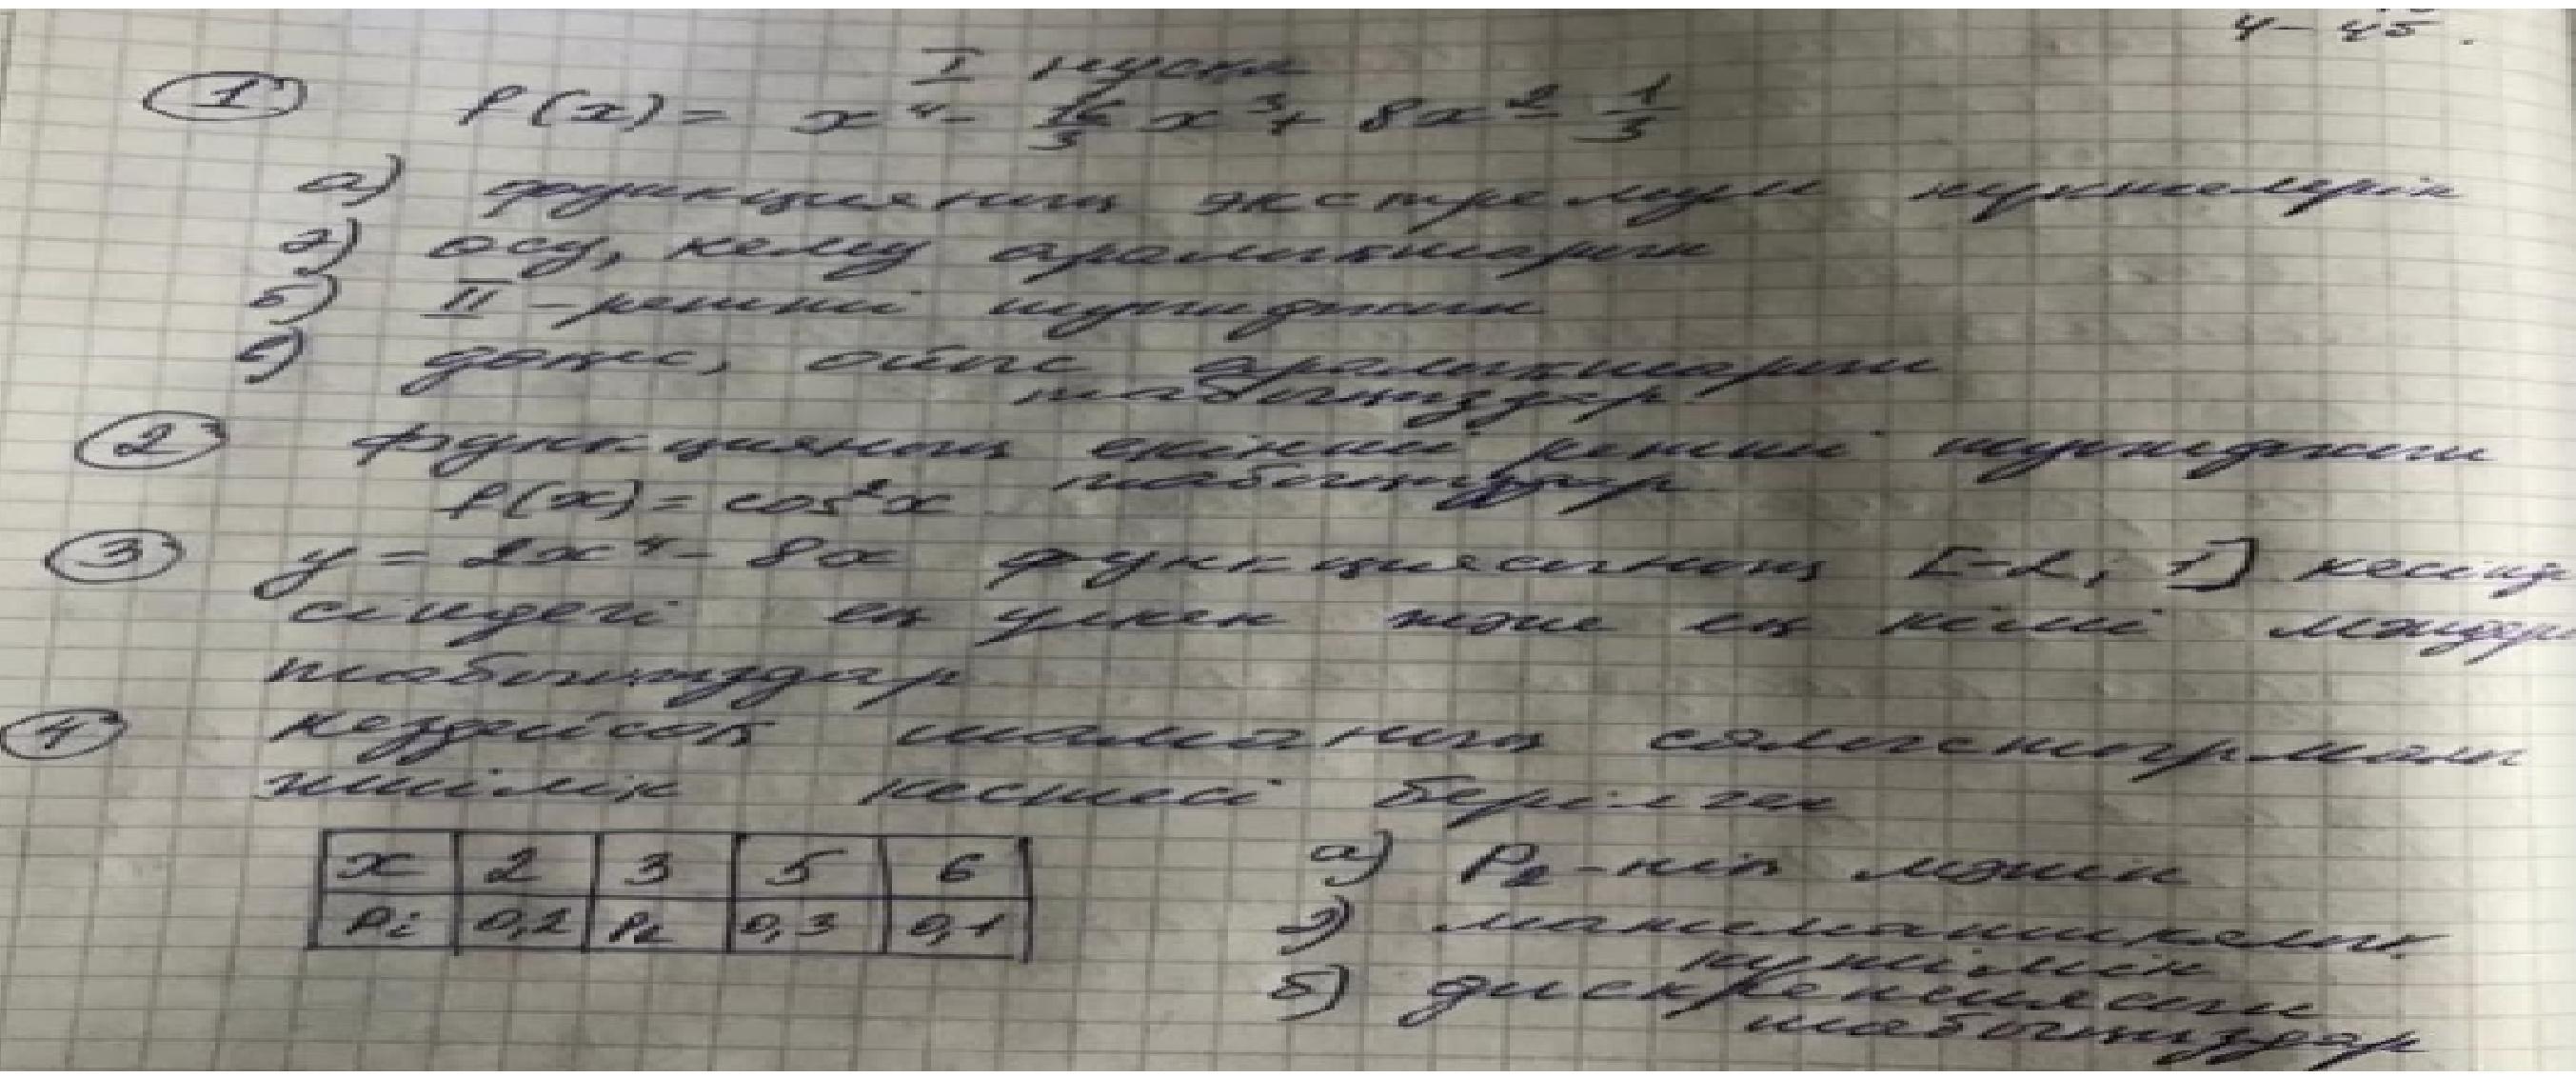 I нұсқа
① f(x) = x⁴ - 16/3 x³ + 8x² - 1/3
а) функцияның экстремум нүктелерін
ә) өсу, кему аралықтарын
б) II-ретті туындысын
в) дөңес, ойыс аралықтарын
табыңыздар
② Функцияның екінші ретті туындысын
табыңыздар
f(x) = cos²x
③ y = 2x⁴ - 8x функциясының [-2; 1] кесінді
сіндегі ең үлкен және ең кіші мәндер
табыңыздар
кездейсоқ шаманың салыстырмалы
жиілік кестесі берілген
x 2 3 5 6
Pi 0,2 P2 0,3 0,1
а) P2-нің мәнін
ә) математикалық
күтімін
б) дисперсиясын
табыңыздар